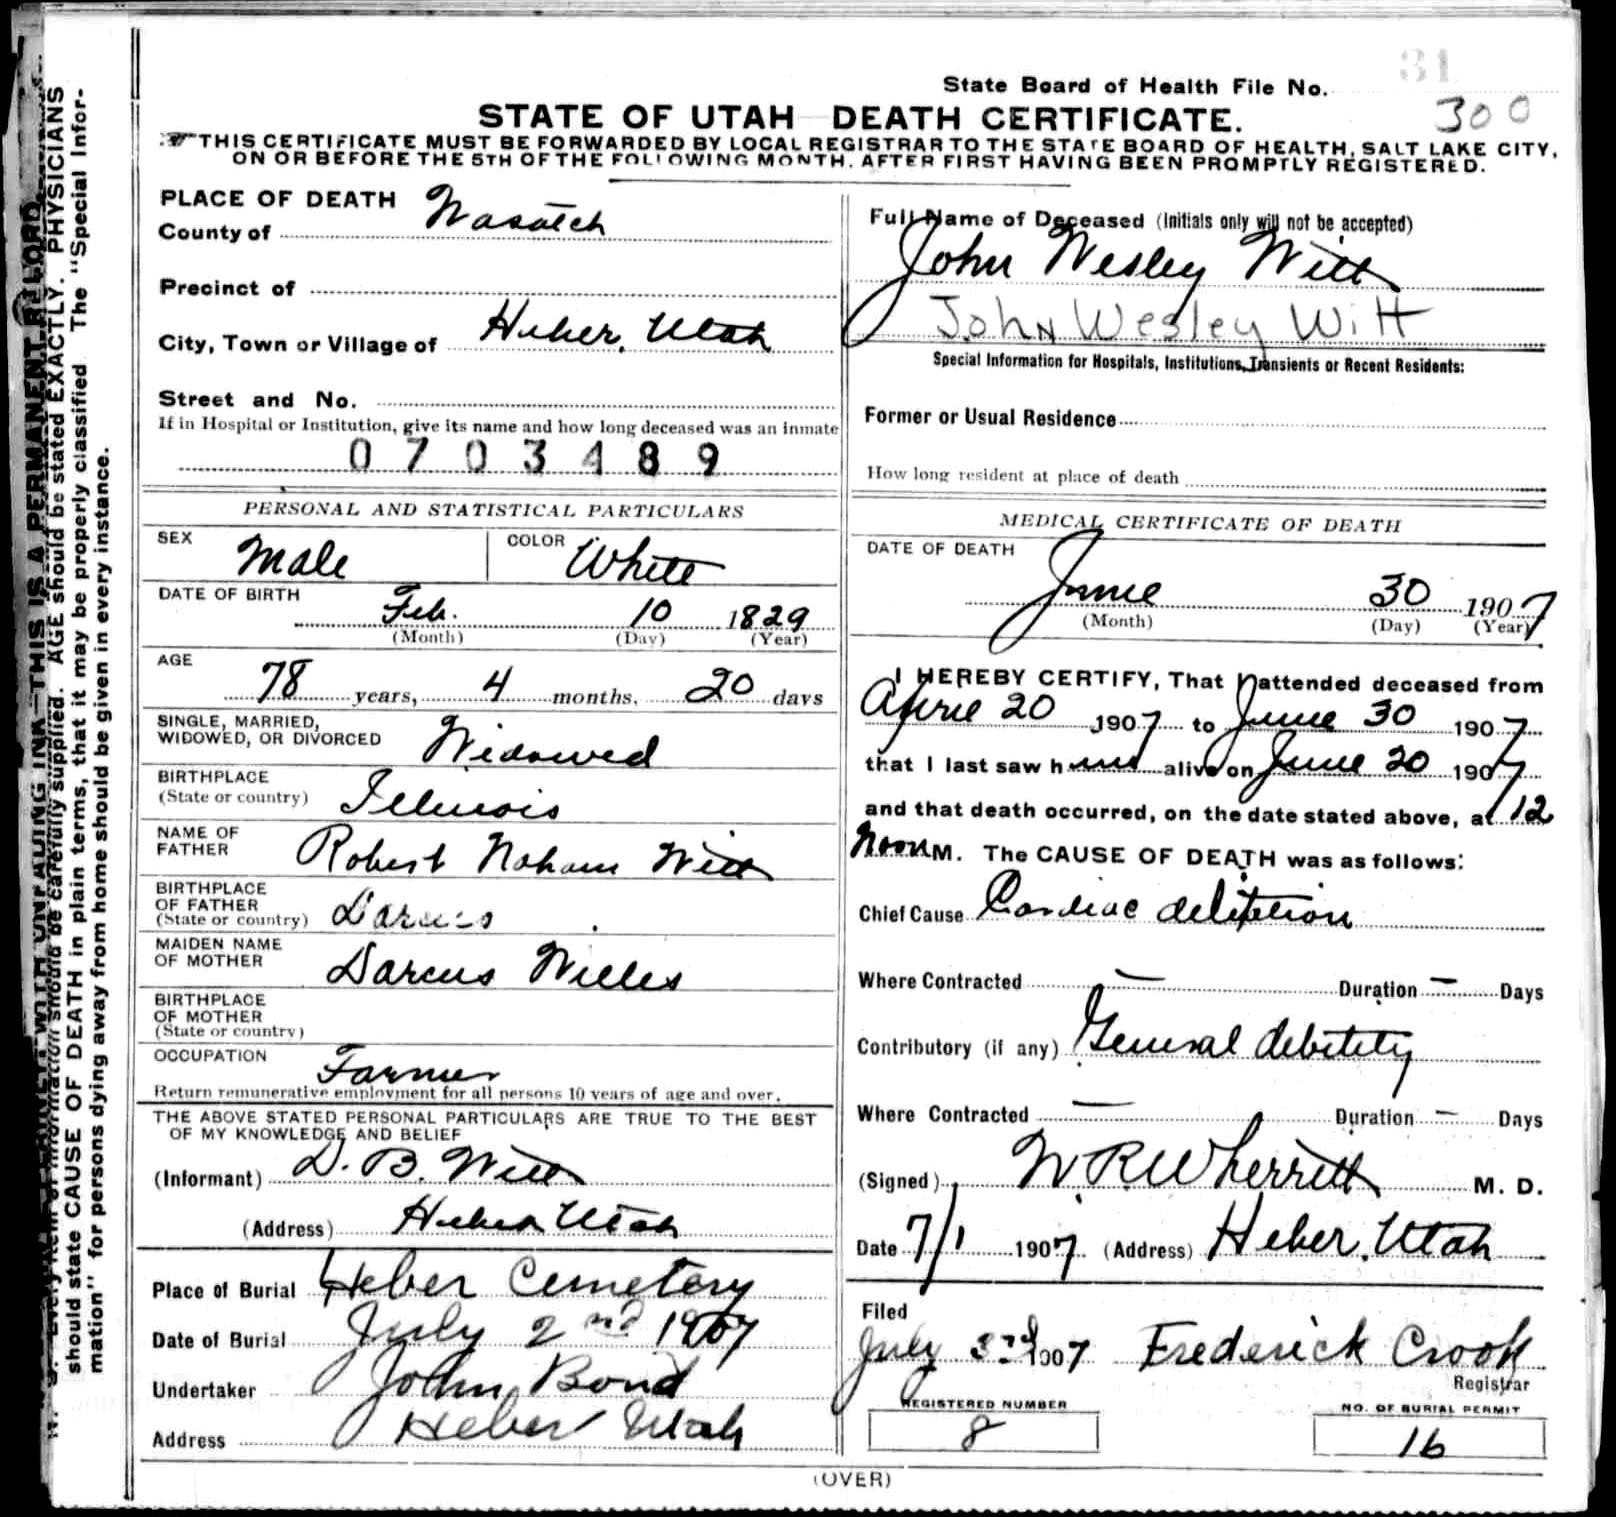 31
State Board of Health File No.
300
STATE OF UTAH DEATH CERTIFICATE.
THIS CERTIFICATE MUST BE FORWARDED BY LOCAL REGISTRAR TO THE STATE BOARD OF HEALTH, SALT LAKE CITY,
ON OR BEFORE THE 5TH OF THE FOLLOWING MONTH, AFTER FIRST HAVING BEEN PROMPTLY REGISTERED.
PLACE OF DEATH
County of Wasatch
Precinct of
City, Town or Village of Heber, Utah
Street and No.
If in Hospital or Institution, give its name and how long deceased was an inmate
0703489
PERSONAL AND STATISTICAL PARTICULARS
SEX Male COLOR White
DATE OF BIRTH
Feb. 10 1829
(Month) (Day) (Year)
AGE
78 years, 4 months, 20 days
SINGLE, MARRIED,
WIDOWED, OR DIVORCED Widowed
BIRTHPLACE
(State or country) Illinois
NAME OF
FATHER Robert Noham Witt
BIRTHPLACE
OF FATHER
(State or country)
MAIDEN NAME
OF MOTHER Darcus Willis
BIRTHPLACE
OF MOTHER
(State or country)
OCCUPATION Farmer
Return remunerative employment for all persons 10 years of age and over.
THE ABOVE STATED PERSONAL PARTICULARS ARE TRUE TO THE BEST
OF MY KNOWLEDGE AND BELIEF
(Informant) D. B. Witt
(Address) Heber Utah
Place of Burial Heber Cemetery
Date of Burial July 2nd 1907
Undertaker John Bond
Address Heber Utah
Full Name of Deceased (Initials only will not be accepted)
John Wesley Witt
John Wesley Witt
Special Information for Hospitals, Institutions, Transients or Recent Residents:
Former or Usual Residence
How long resident at place of death
MEDICAL CERTIFICATE OF DEATH
DATE OF DEATH
June 30 1907
(Month) (Day) (Year)
I HEREBY CERTIFY, That I attended deceased from
April 20 1907 to June 30 1907
that I last saw him alive on June 20 1907
and that death occurred, on the date stated above, at 12
Noon M. The CAUSE OF DEATH was as follows:
Chief Cause Cardiac
Where Contracted — Duration — Days
Contributory (if any) General debility
Where Contracted — Duration — Days
(Signed) W. R. Wherritt M. D.
Date 7/1 1907 (Address) Heber, Utah
Filed
July 3rd 1907 Frederick Crook
Registrar
REGISTERED NUMBER
8
NO. OF BURIAL PERMIT
16
(OVER)
AGE should be stated EXACTLY. PHYSICIANS
should state CAUSE OF DEATH in plain terms, that it may be properly classified. The "Special Infor-
mation" for persons dying away from home should be given in every instance.